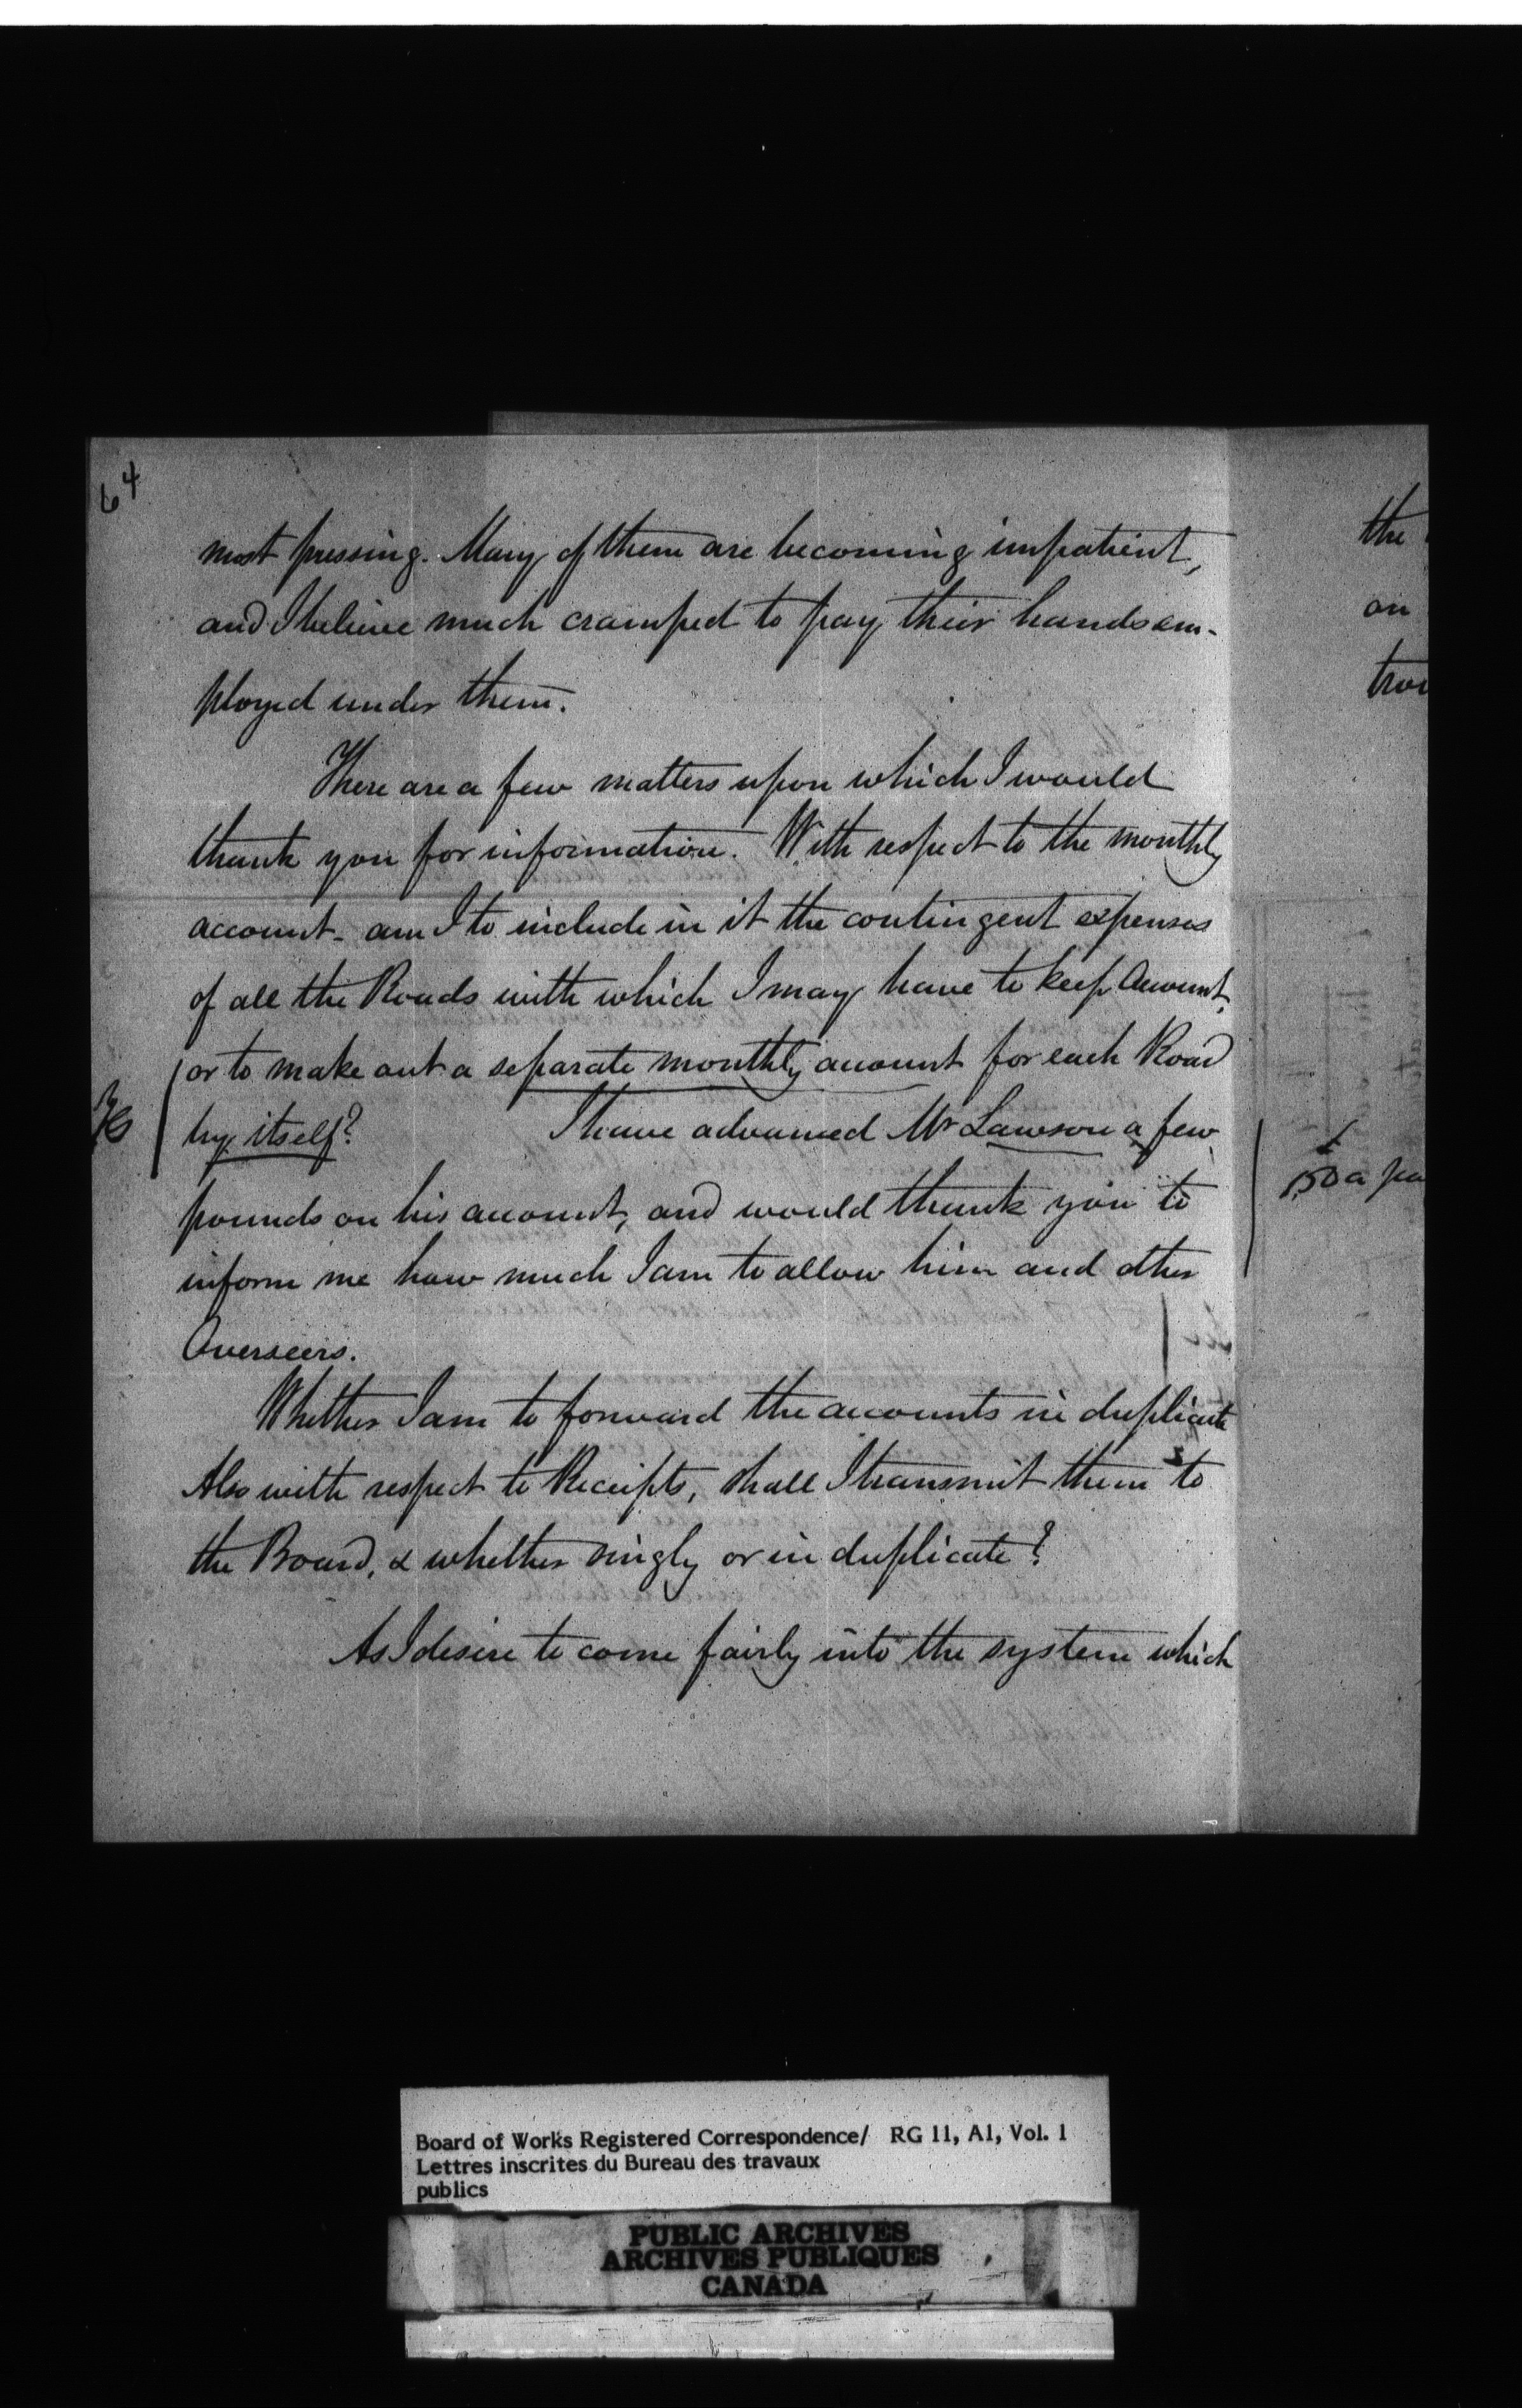 64
most pressing. Many of them are becoming impatient,
and I believe much cramped to pay their hands em-
ployed under them.
There are a few matters upon which I would
thank you for information. With respect to the monthly
account - am I to include in it the contingent expenses
of all the Roads with which I may have to keep Account,
or to make out a separate monthly account for each Road
by itself? I have advanced Mr Lawson a few
pounds on his account, and would thank you to
inform me how much I am to allow him and other
Overseers.
Whether I am to forward the accounts in duplicate
Also with respect to Receipts, shall I transmit them to
the Board, & whether singly or in duplicate?
As I desire to come fairly into the system which
the
on
150 a
Board of Works Registered Correspondence/ RG 11, A1, Vol. 1
Lettres inscrites du Bureau des travaux
publics
PUBLIC ARCHIVES
ARCHIVES PUBLIQUES
CANADA